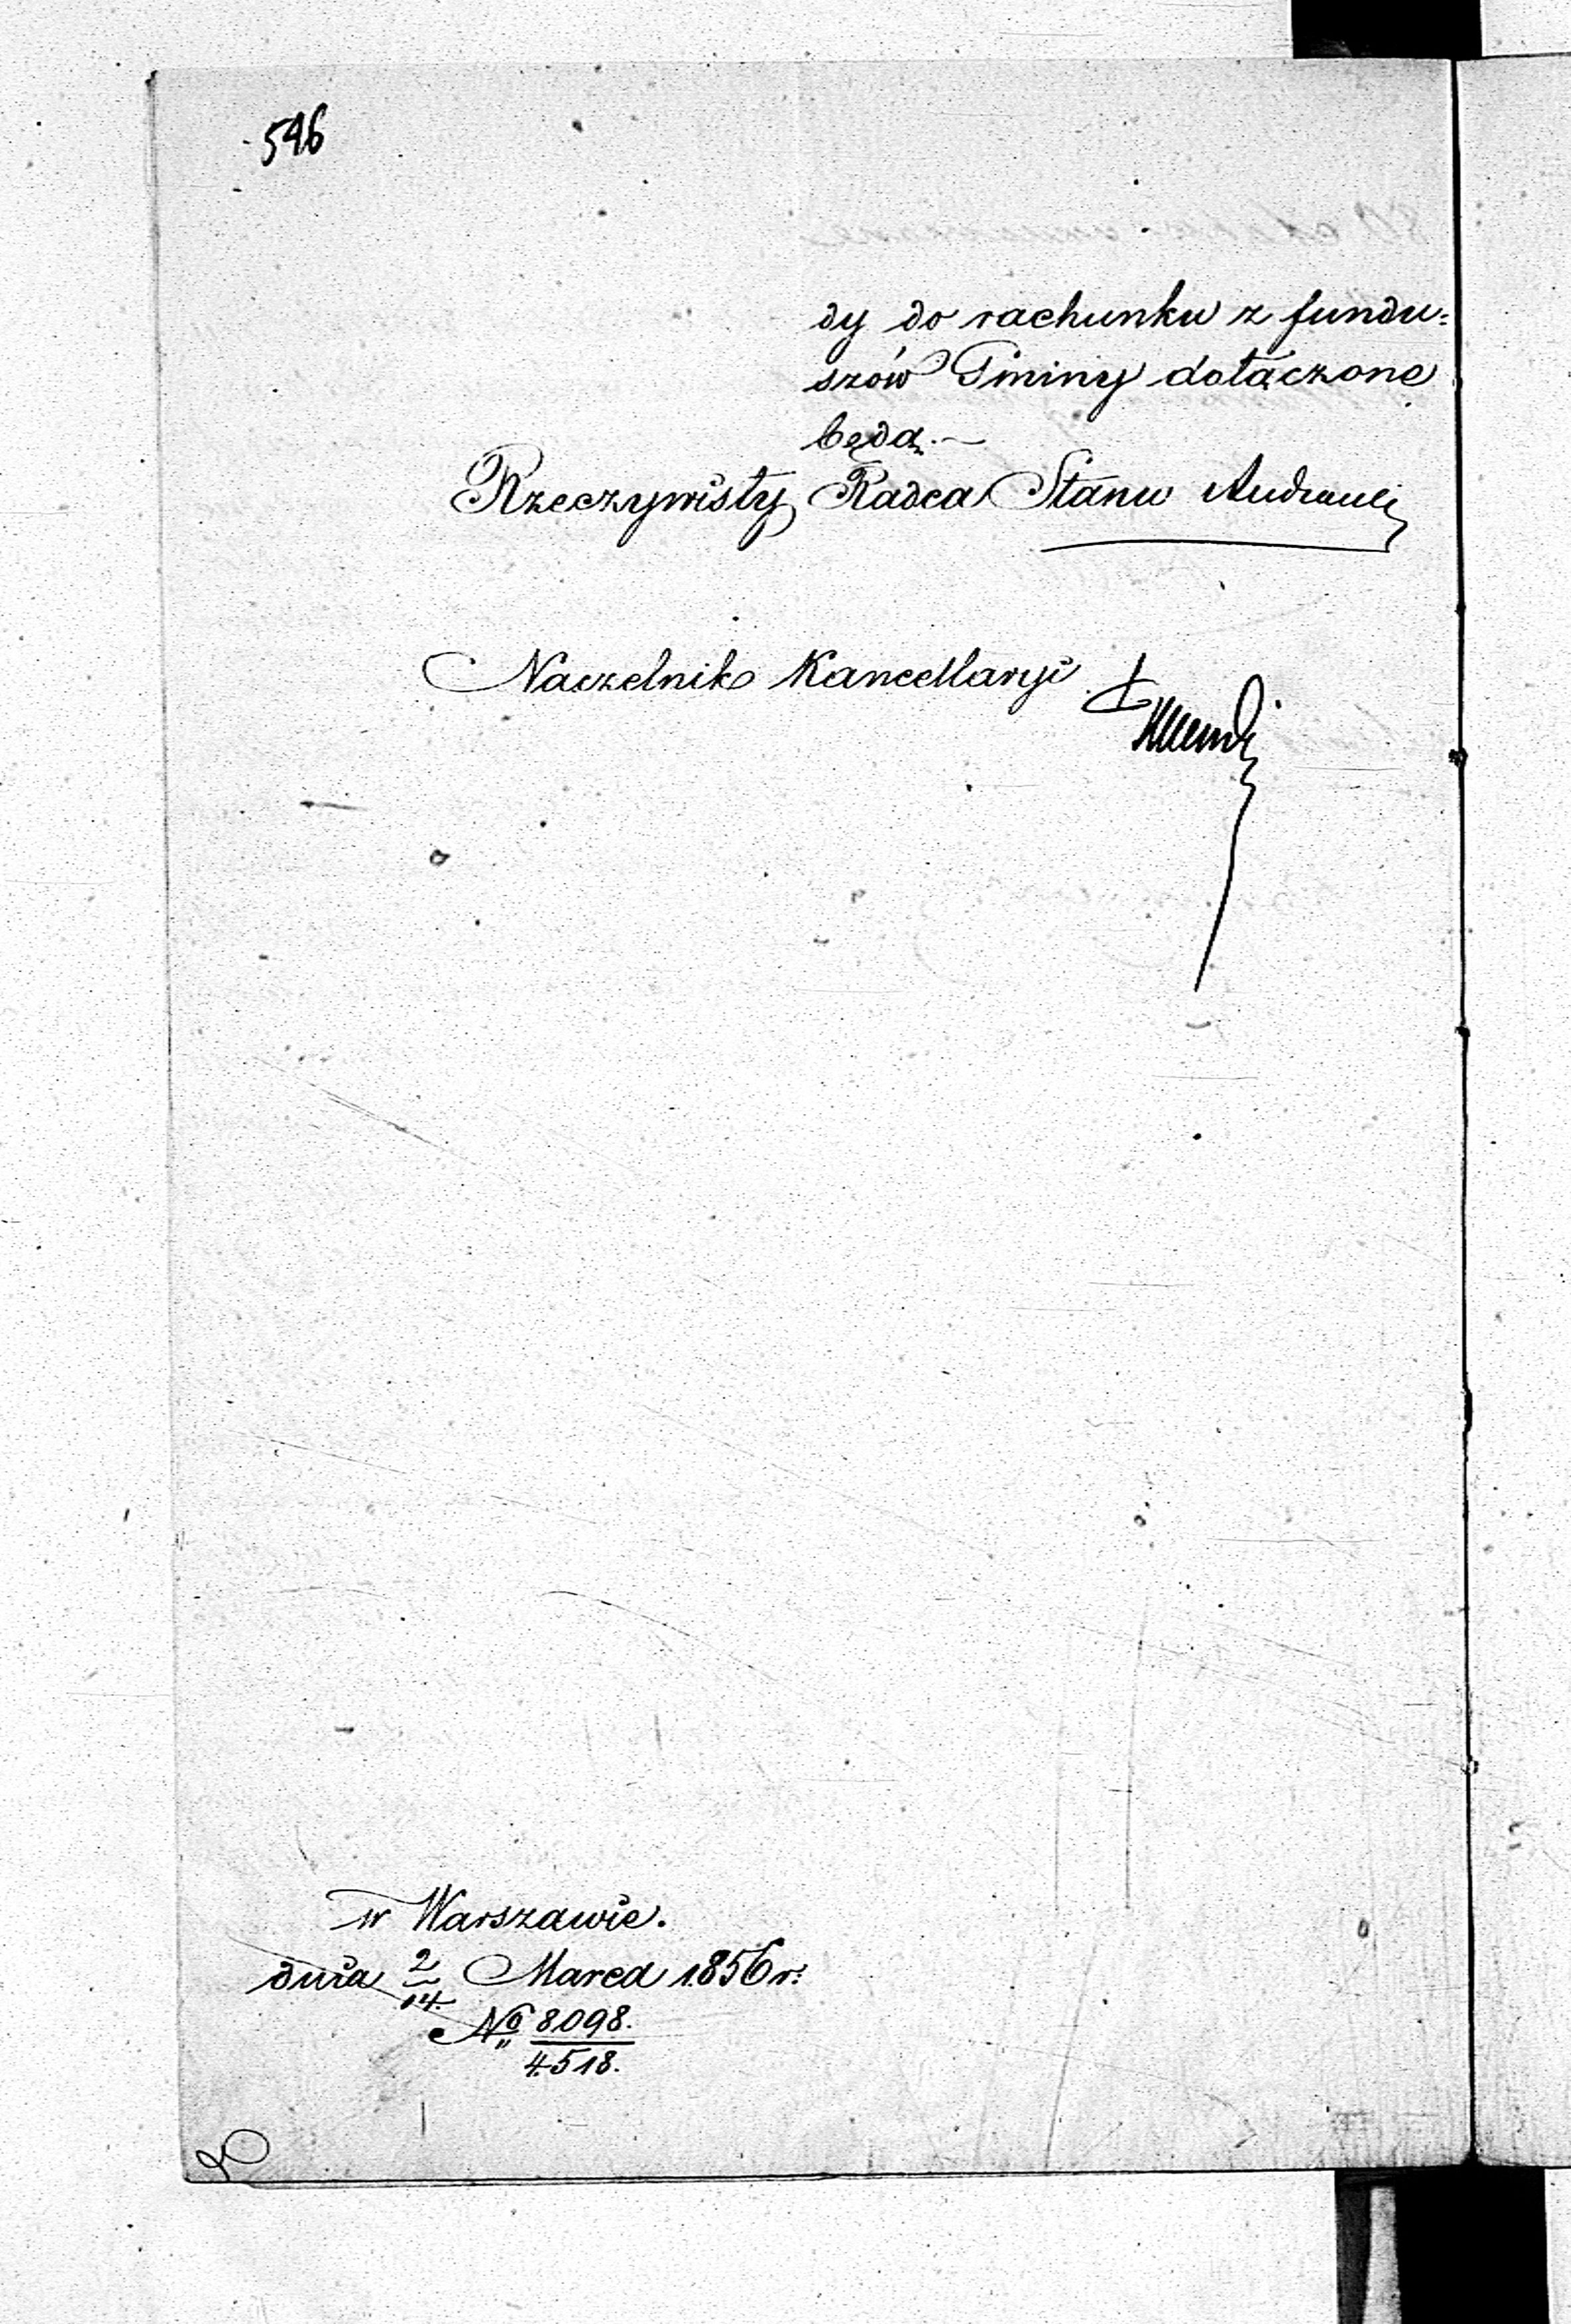 546
dy do rachunku z fundu=
szów Gminy dołączone
będą.—
Rzeczywisty Radca Stanu
Naczelnik Kancellaryi
w Warszawie.
dnia 2/14 Marca 1856 r:
No 8098./4518.